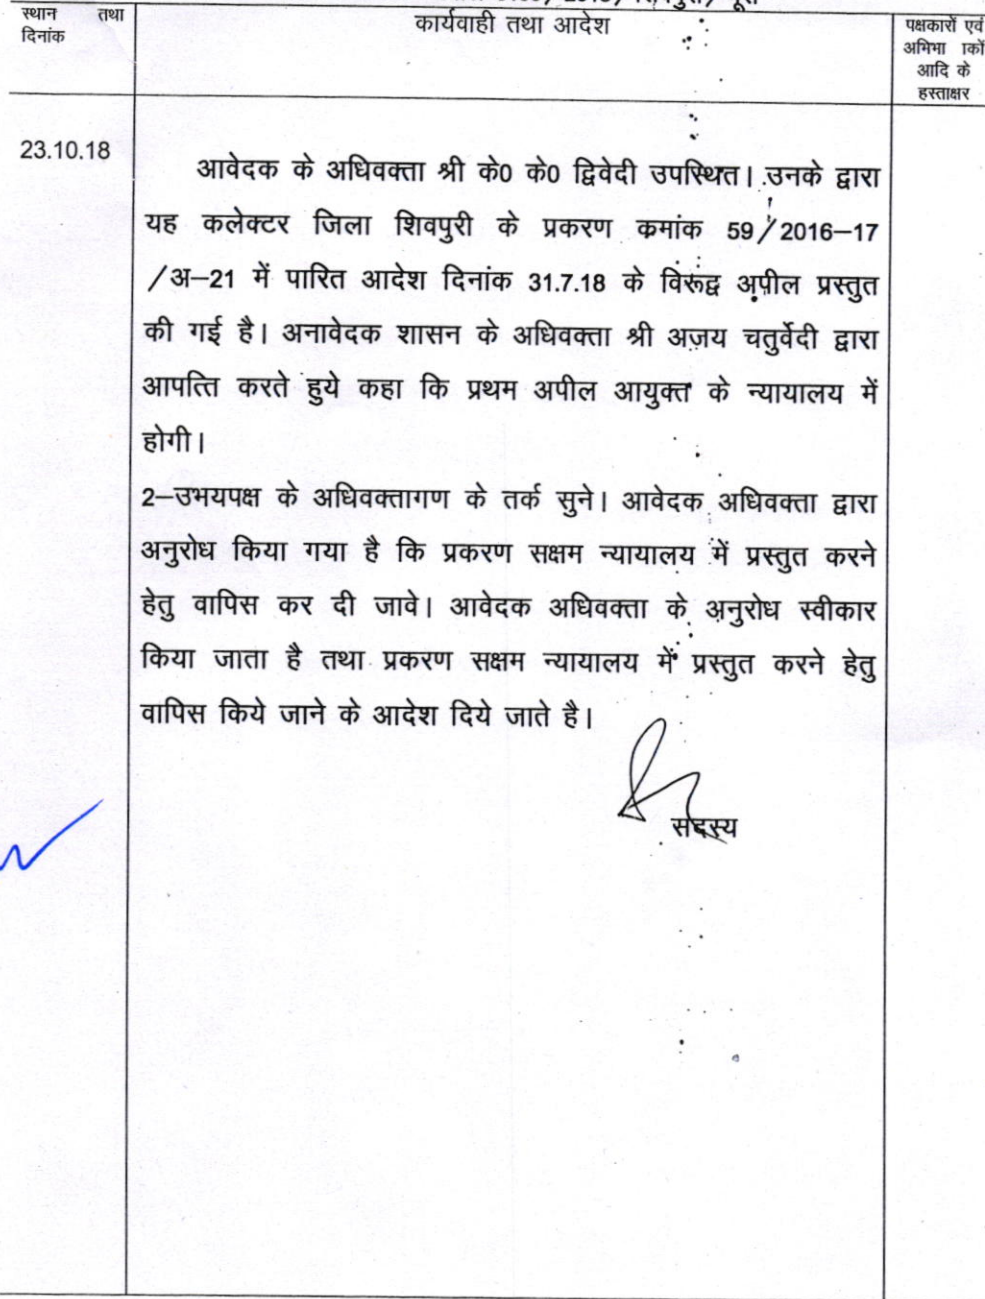 स्थान तथा
दिनांक
कार्यवाही तथा आदेश
पक्षकारों एवं
आदि के
हस्ताक्षर
23.10.18
आवेदक के अधिवक्ता श्री के0 के0 द्विवेदी उपस्थित। उनके द्वारा
यह कलेक्टर जिला शिवपुरी के प्रकरण कमांक 59/2016–17
/अ–21 में पारित आदेश दिनांक 31.7.18 के विरूद्व अपील प्रस्तुत
की गई है। अनावेदक शासन के अधिवक्ता श्री अजय चतुर्वेदी द्वारा
आपत्ति करते हुये कहा कि प्रथम अपील आयुक्त के न्यायालय में
होगी।
2–उभयपक्ष के अधिवक्तागण के तर्क सुने। आवेदक अधिवक्ता द्वारा
अनुरोध किया गया है कि प्रकरण सक्षम न्यायालय में प्रस्तुत करने
हेतु वापिस कर दी जावे। आवेदक अधिवक्ता के अनुरोध स्वीकार
किया जाता है तथा प्रकरण सक्षम न्यायालय में प्रस्तुत करने हेतु
वापिस किये जाने के आदेश दिये जाते है।
सदस्य